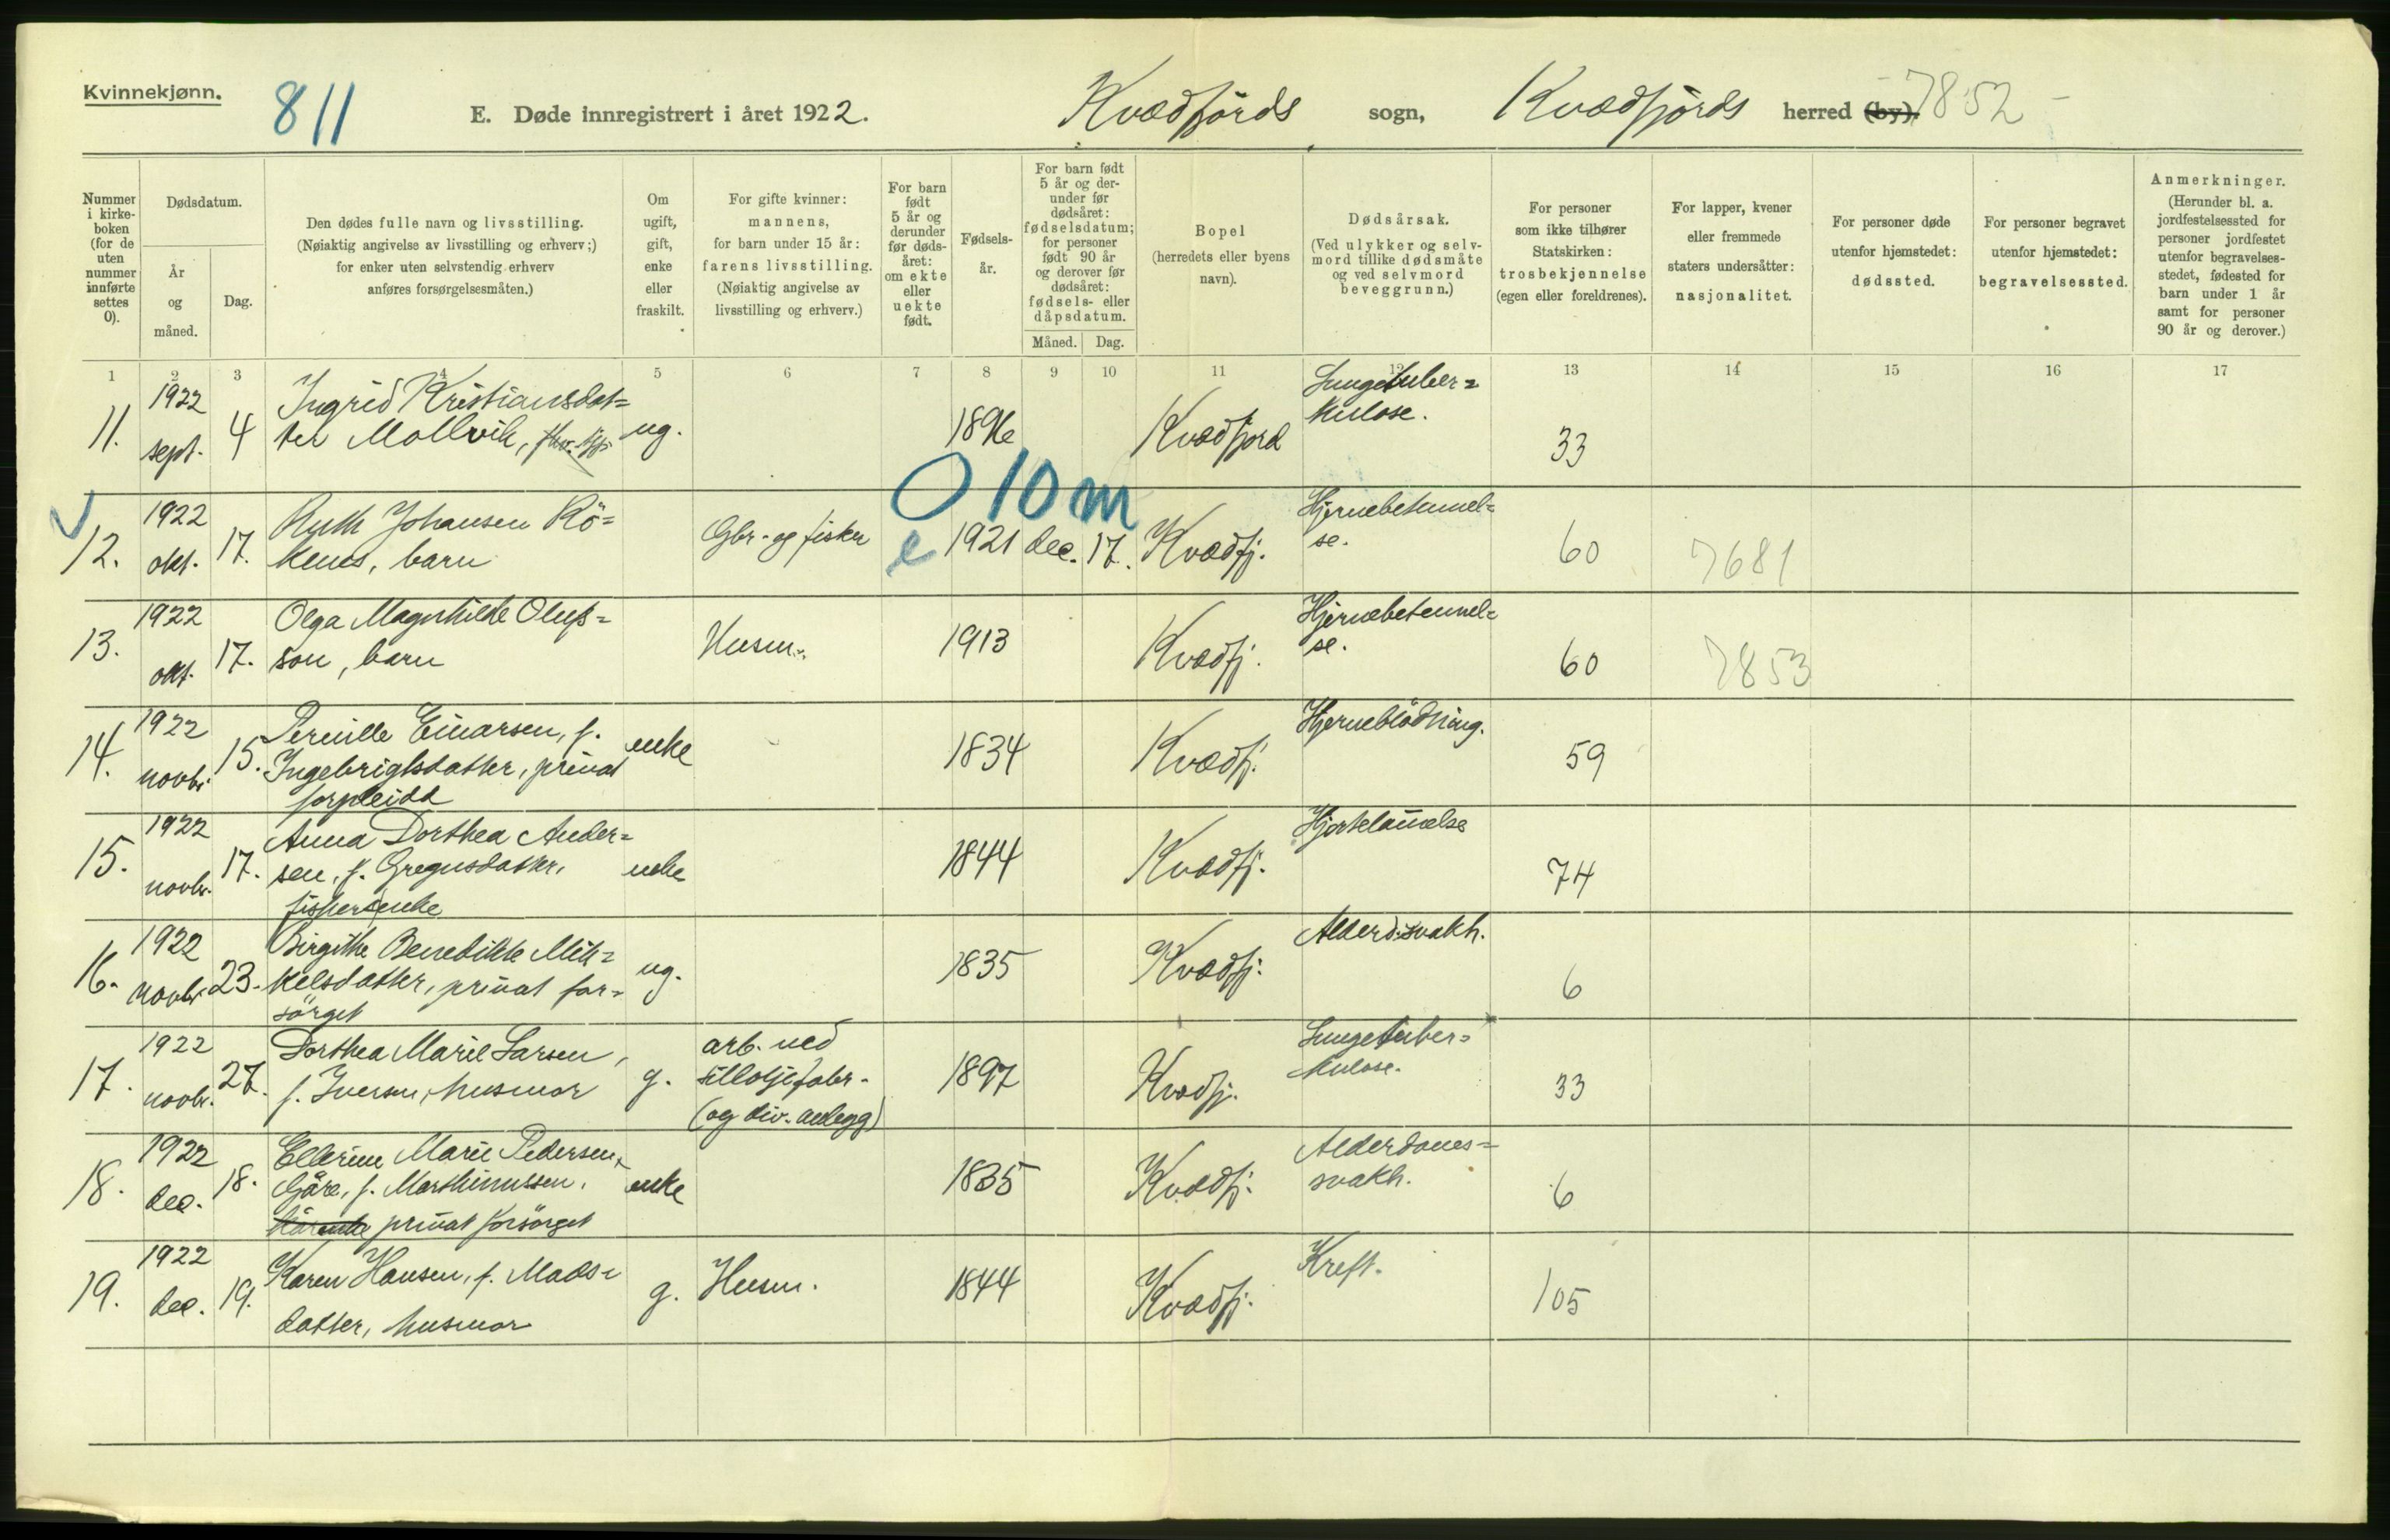 Kvinnekjønn.
811
E. Døde innregistrert i året 1922.
Kvædfjords sogn, Kvædfjords herred (by). 7852
Nummer i kirke-boken (for de uten nummer innførte settes 0).
Dødsdatum.
År og måned.
Dag.
Den dødes fulle navn og livsstilling.
(Nøiaktig angivelse av livsstilling og erhverv;)
for enker uten selvstendig erhverv
anføres forsørgelsesmåten.)
Om ugift, gift, enke eller fraskilt.
For gifte kvinner:
mannens,
for barn under 15 år:
farens livsstilling.
(Nøiaktig angivelse av
livsstilling og erhverv.)
For barn født 5 år og derunder før døds-året: om ekte eller uekte født.
Fødsels-år.
For barn født 5 år og der-under før dødsåret: fødselsdatum; for personer født 90 år og derover før dødsåret: fødsels- eller dåpsdatum.
Måned. Dag.
Bopel
(herredets eller byens navn).
Dødsårsak.
(Ved ulykker og selv-mord tillike dødsmåte og ved selvmord beveggrunn.)
For personer
som ikke tilhører
Statskirken:
trosbekjennelse
(egen eller foreldrenes).
For lapper, kvener
eller fremmede
staters undersåtter:
nasjonalitet.
For personer døde
utenfor hjemstedet:
dødssted.
For personer begravet
utenfor hjemstedet:
begravelsessted.
Anmerkninger.
(Herunder bl. a.
jordfestelsessted for
personer jordfestet
utenfor begravelses-
stedet, fødested for
barn under 1 år
samt for personer
90 år og derover.)
1 2 3 4 5 6 7 8 9 10 11 12 13 14 15 16 17
1922 Ingrid Kristiansdat= Lungetuber=
11. sept. 4 ter Mollvik, ug. 1896 Kvædfjord kulose. 33
0 10 m
1922 Ruth Johansen Rö= Hjernebetennel=
12. okt. 17. kenes, barn Gbr. og fisker e 1921 dec. 17. Kvædfj. se. 60 7681
1922 Olga Magnhilde Oluf= Hjernebetennel=
13. okt. 17. son, barn Husm. 1913 Kvædfj. se. 60 7853
1922 Pernille Einarsen, f. Hjerneblödning.
14. novbr. 15. Ingebrigtsdatter, privat enke 1834 Kvædfj. 59
forpleidd
1922 Anna Dorthea Ander= Hjertelammelse
15. novbr. 17. sen, f. Gregusdatter, enke 1844 Kvædfj. 74
fiskerenke
1922 Birgithe Benedikte Mik= Alderd.svakh.
16. novbr. 23. kelsdatter, privat for= ug. 1835 Kvædfj. 6
sörget
1922 Dorthea Marie Larsen, arb. ved Lungetuber=
17. novbr. 27. f. Iversen, husmor g. silloljefabr. 1897 Kvædfj. kulose. 33
(og div. anlegg)
1922 Ellerine Marie Pedersen, Alderdoms=
18. dec. 18. Gåre, f. Marthinussen, enke 1835 Kvædfj. svakh. 6
privat forsörget
1922 Karen Hansen, f. Mads= Kreft.
19. dec. 19. datter, husmor g. Husm. 1844 Kvædfj. 105